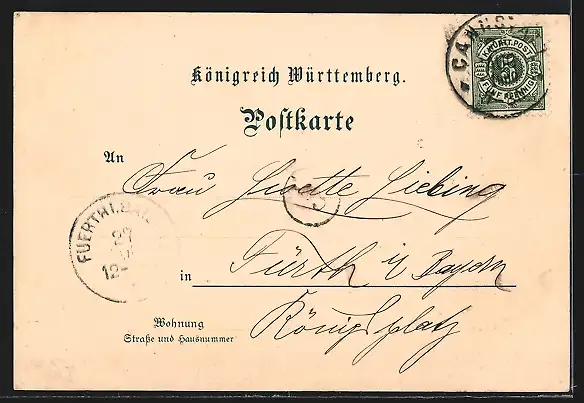 CANNST
K.WÜRTT.POST
FÜNF PFENNIG
Königreich Württemberg.
Postkarte
An
Frau Liebing
FUERTH
27
12
in
Fürth i/ Bayern
Wohnung
Straße und Hausnummer
Königsplatz